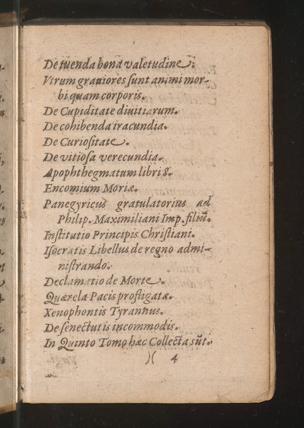 De tuenda bona valetudine.
Vtrum grauiores sunt animi mor-
bi quam corporis.
De Cupiditate diuitiarum.
De cohibenda iracundia.
De Curiositate.
De vitiosa verecundia.
Apophthegmatum libri 8.
Encomium Moriæ.
Panegyricus gratulatorius ad
Philip. Maximiliani Imp. filiũ.
Institutio Principis Christiani.
Isocratis Libellus de regno admi-
nistrando.
Declamatio de Morte.
Quærela Pacis profligatæ.
Xenophontis Tyrannus.
De senectutis incommodis.
In Quinto Tomo hæc Collecta sũt.
)( 4